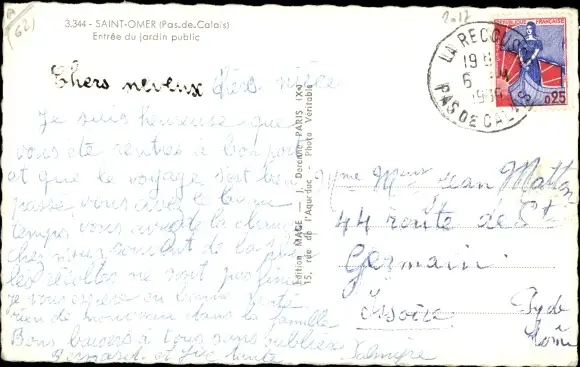 3.344 - SAINT-OMER (Pas-de-Calais)
Entrée du jardin public
(62)
Chers neveux Chers nièce
Je suis heureuse que
vous ete rentres a bon port
et que le voyage sest bien
passé vous avez le beau
temps vous avez de la chance
chez nous souvent de la pluie
les récoltes ne sont pas
je vous espere en bonne santé
rien de nouveau dans la famille
Bons baisers a tous sans oublier
Bernard et
Edition MAGE — J. Derenne-PARIS (X•)
15, rue de l'Aqueduc - Photo Véritable
LA RECOUSSE
19 H
6
PAS DE CALAIS
REPUBLIQUE FRANÇAISE
0,25
Mme Mr Jean Matton
44 route de St
Germain
Issoire
Puy de
Dôme